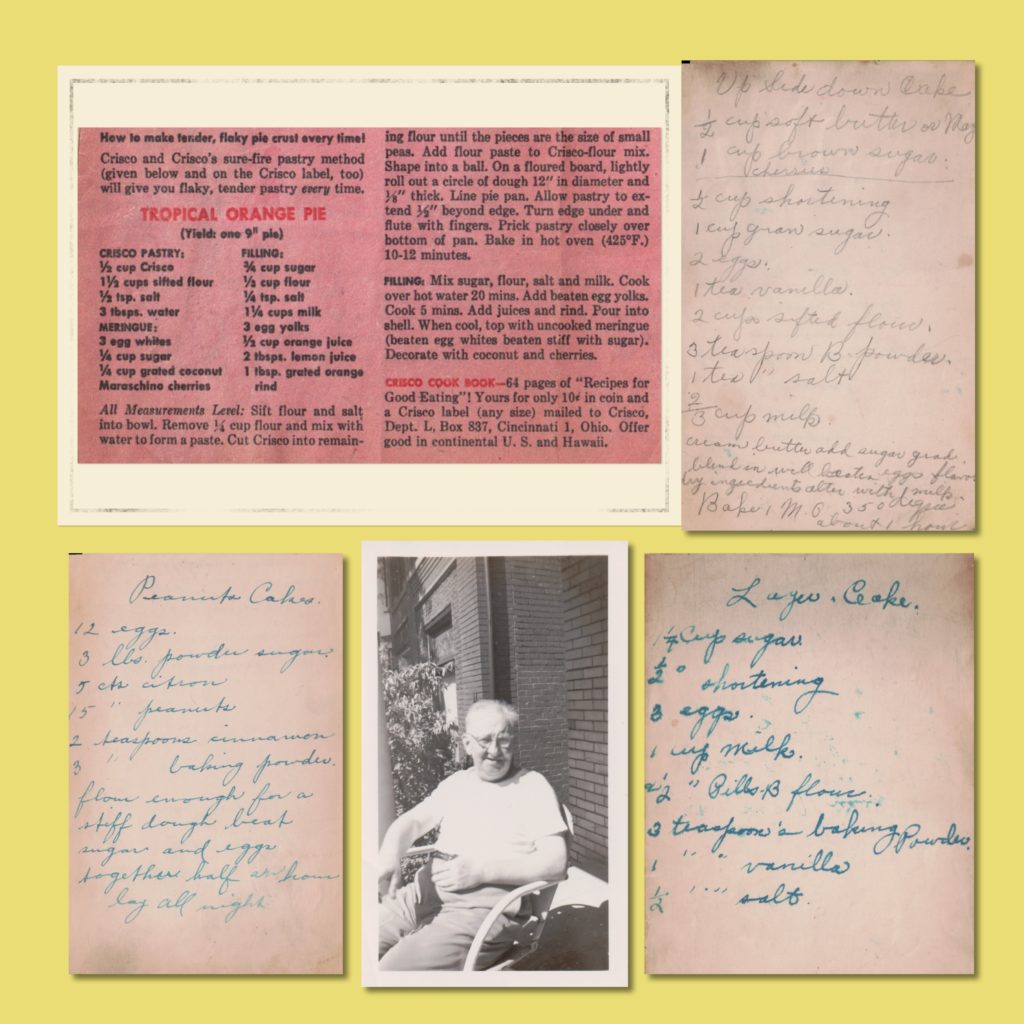 How to make tender, flaky pie crust every time!
Crisco and Crisco's sure-fire pastry method
(given below and on the Crisco label, too)
will give you flaky, tender pastry every time.
TROPICAL ORANGE PIE
(Yield: one 9" pie)
CRISCO PASTRY:
½ cup Crisco
1½ cups sifted flour
½ tsp. salt
3 tbsps. water
MERINGUE:
3 egg whites
¼ cup sugar
¼ cup grated coconut
Maraschino cherries
FILLING:
¾ cup sugar
⅓ cup flour
¼ tsp. salt
1¼ cups milk
3 egg yolks
½ cup orange juice
2 tbsps. lemon juice
1 tbsp. grated orange
rind
All Measurements Level: Sift flour and salt
into bowl. Remove ¼ cup flour and mix with
water to form a paste. Cut Crisco into remain-
ing flour until the pieces are the size of small
peas. Add flour paste to Crisco-flour mix.
Shape into a ball. On a floured board, lightly
roll out a circle of dough 12" in diameter and
⅛" thick. Line pie pan. Allow pastry to ex-
tend ½" beyond edge. Turn edge under and
flute with fingers. Prick pastry closely over
bottom of pan. Bake in hot oven (425°F.)
10-12 minutes.
FILLING: Mix sugar, flour, salt and milk. Cook
over hot water 20 mins. Add beaten egg yolks.
Cook 5 mins. Add juices and rind. Pour into
shell. When cool, top with uncooked meringue
(beaten egg whites beaten stiff with sugar).
Decorate with coconut and cherries.
CRISCO COOK BOOK—64 pages of "Recipes for
Good Eating"! Yours for only 10¢ in coin and
a Crisco label (any size) mailed to Crisco,
Dept. L, Box 837, Cincinnati 1, Ohio. Offer
good in continental U. S. and Hawaii.
Up Side down Cake
½ cup soft butter or Maz
1 cup brown sugar.
cherries
½ cup shortening
1 cup gran sugar.
2 eggs.
1 tea vanilla.
2 cups sifted flour.
3 teaspoon B. powder.
1 tea " salt
⅔ cup milk
cream butter add sugar grad.
blend in well beaten eggs flavor
dry ingredients alter with milk.
Bake 1 M. O. 350 degree
about 1 hour
Peanuts Cakes.
12 eggs.
3 lbs. powder sugar.
5 cts citron
15 " peanuts
2 teaspoons cinnamon
3 " baking powder.
flour enough for a
stiff dough beat
sugar and eggs
together half an hour
lay all night
Layer. Cake.
Cup sugar
½ " shortening
3 eggs.
1 cup milk.
½ " Pills-B flour.
3 teaspoon's baking Powder.
1 " " vanilla
½ " " " salt.